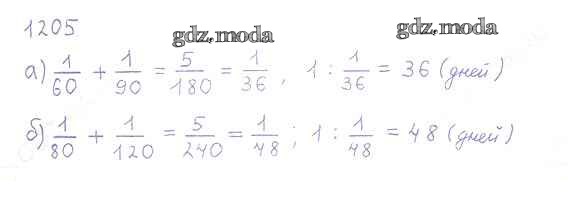 1205
gdz.moda
gdz.moda
а) 1/60 + 1/90 = 5/180 = 1/36, 1 : 1/36 = 36 (дней)
б) 1/80 + 1/120 = 5/240 = 1/48; 1 : 1/48 = 48 (дней)